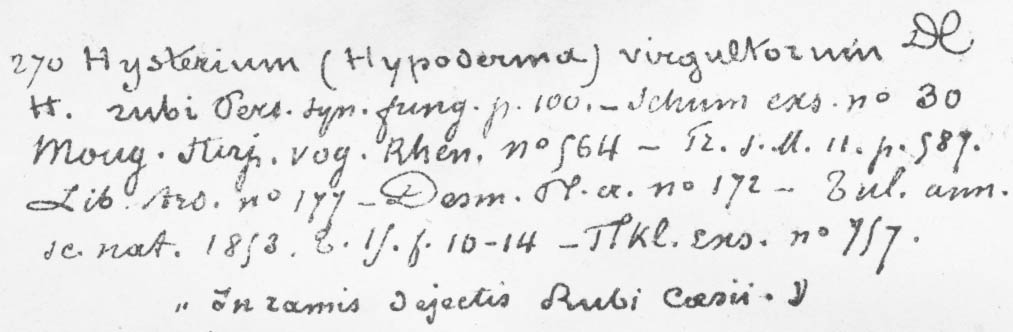 270 Hysterium (Hypoderma) virgultorum DC
H. rubi Pers. syn. fung. p. 100. – Schum exs. no 30
Moug. stirp. vog. Rhen. no 564 – Fr. S. M. 11. p. 587.
Lib. Ard. no 177 – Desm. Pl. cr. no 172 – Tul. ann.
sc. nat. 1853. t. 15. f. 10-14 – Flkl. exs. no 757.
„ In ramis dejectis Rubi Cæsii.